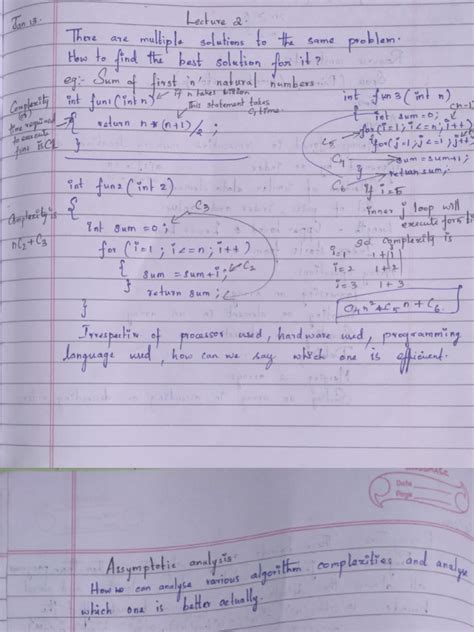 Jan 13.
Lecture 2.
There are multiple solutions to the same problem.
How to find the best solution for it?
eg:- Sum of first 'n' natural numbers.
Complexity
or
time required
to execute
fun1 is C1
int fun1(int n)
if n takes billion
This statement takes
C1 time.
{
return n*(n+1)/2;
}
int fun3(int n)
{ int sum=0;
for(i=1; i<=n; i++)
for(j=1; j<=i; j++)
sum=sum+1;
return sum;
C5
C4
C6
}
if i=5
inner j loop will
execute for 5 ti
so complexity is
i=1 1+1
i=2 1+2
i=3 1+3
C4n²+C5n+C6
int fun2(int 2)
Complexity is
nC2+C3
{
int sum=0;
C3
for(i=1; i<=n; i++)
{ sum=sum+i;
C2
}
return sum;
}
Irrespectiv of processor used, hardware used, programming
language used, how can we say which one is efficient.
Date
Page
Assymptotic analysis.
How we can analyse various algorithm complexities and analyse
which one is better actually.